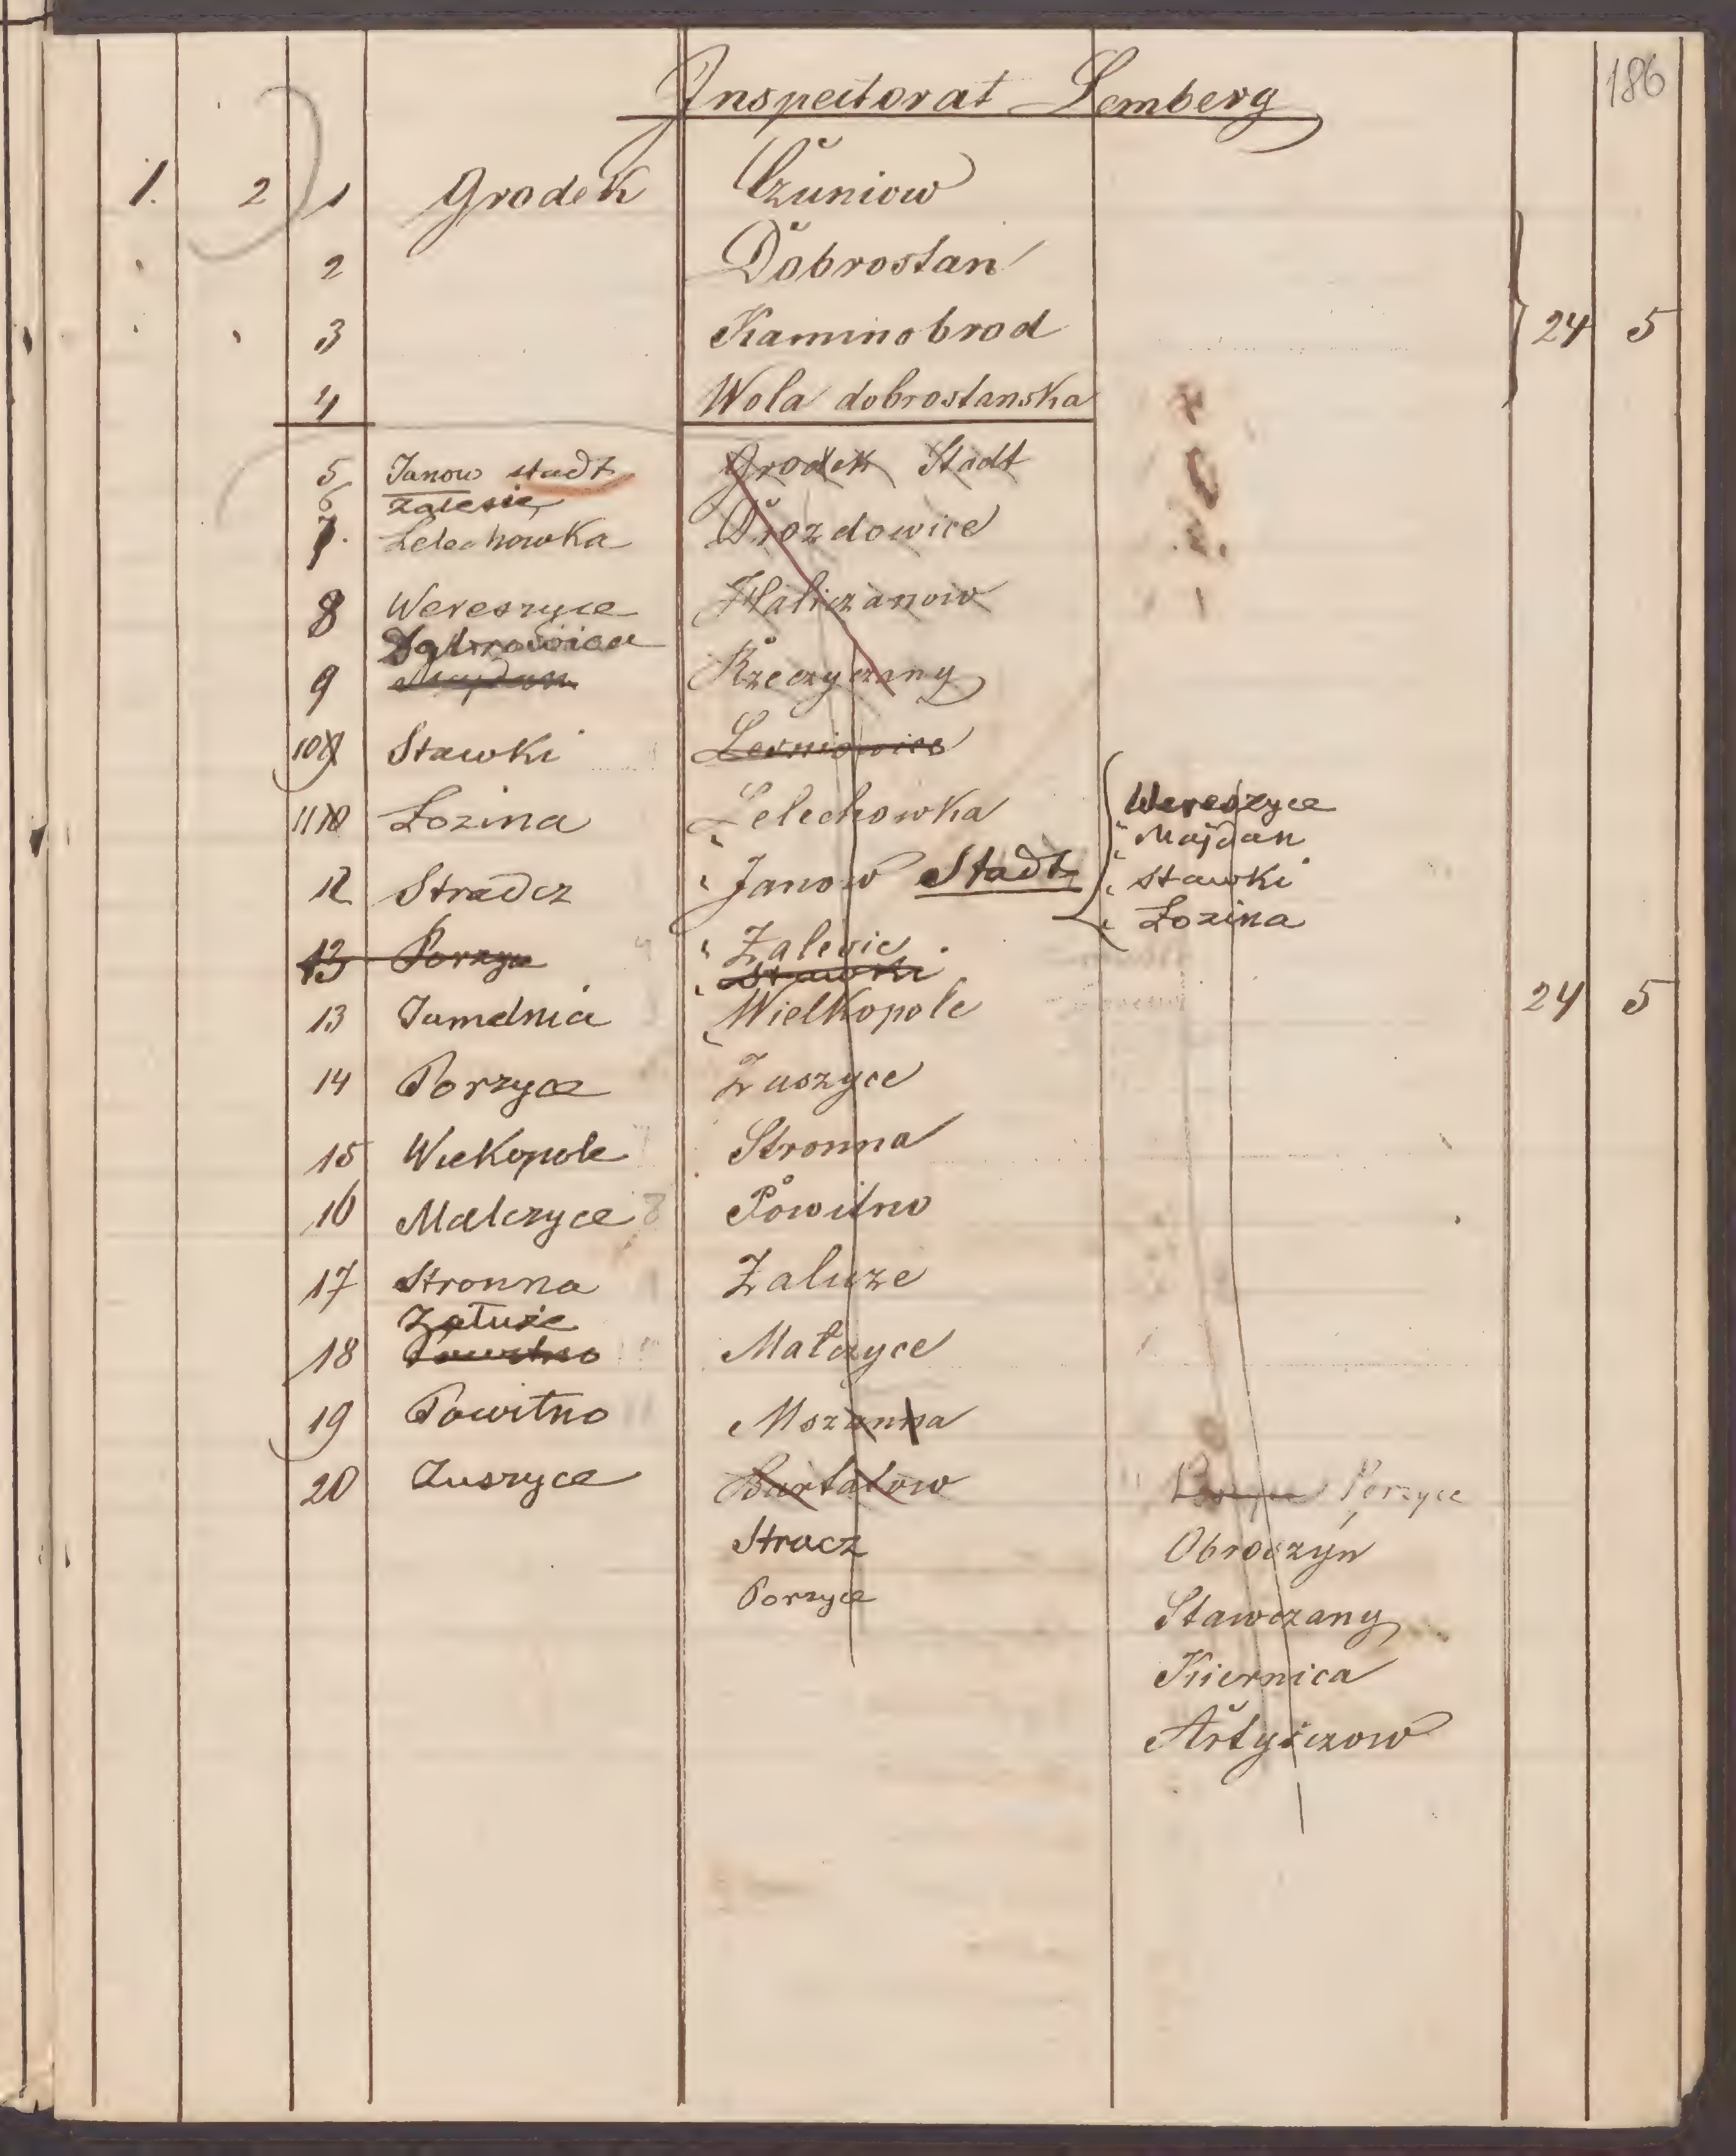 186
Inspectorat Lemberg
1. 2 1 Grodek Czuniow
2 Dobrostan
3 Kaminobrod 24 5
4 Wola dobrostanska
5 Janow stadt Grodek Stadt
6 Zalesie
7. Lelechowka Drozdowice
8 Wereszyce Haliczanow
Dąbrowica
9 Majdan Rzeczyczany
10 9 Stawki Lesniowice
11 10 Lozina Lelechowka Wereszyce
Majdan
12 Stradcz Janow Stadt Stawki
Lozina
13 Porzyce Zalesie
Stawki
13 Jamelnia Wielkopole 24 5
14 Porzyce Zuszyce
15 Wiekopole Stronna
16 Malczyce Powitno
17 Stronna Zaluze
Załuże
18 Powitno Małczyce
19 Powitno Mszanna
20 Zuszyce Bartatow Porzyce
Stracz Obroszyn
Porzyce Stawczany
Kiernica
Artyszczow